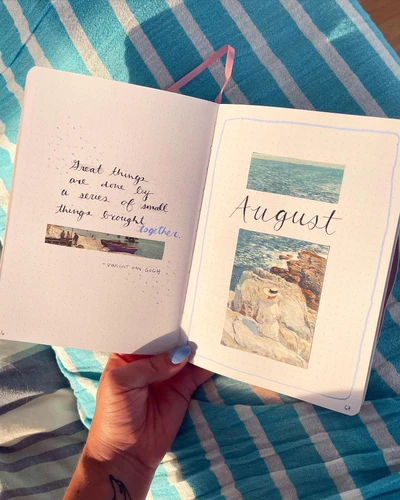 Great things
are done by
a series of small
things brought
together.
- VINCENT VAN GOGH
August